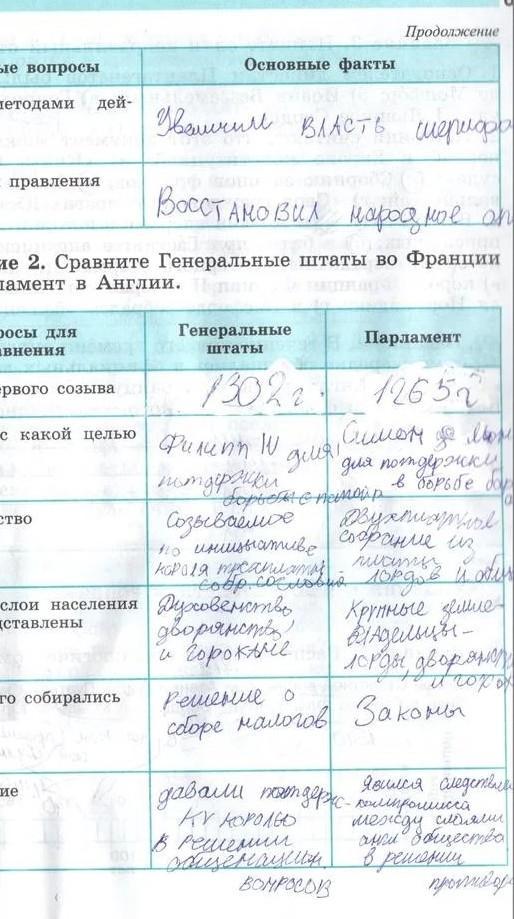 Продолжение
ые вопросы Основные факты
методами дей- Увеличил власть шерифо
правления Восстановил народное оп
ие 2. Сравните Генеральные штаты во Франции
рламент в Англии.
росы для Генеральные Парламент
авнения штаты
ервого созыва 1302 г. 1265 г
с какой целью Филипп IV для Симон де Мон
потдержки для потдержки
борьбы с папой в борьбе бар
ство Созываемое Двухпалатное
по инициативе собрание из
короля трехпалатн палаты
собр. сословий лордов и общ
слои населения Духовенство, Крупные земле-
дставлены дворянство, владельцы-
и горожане лорды, дворянст
и горож
го собирались Решение о Законы
сборе налогов
ие давали потдерж- Явился следствием
ку королю компромисса
в решении между слоями
общенацион англ общества
вопросов в решении
противоре